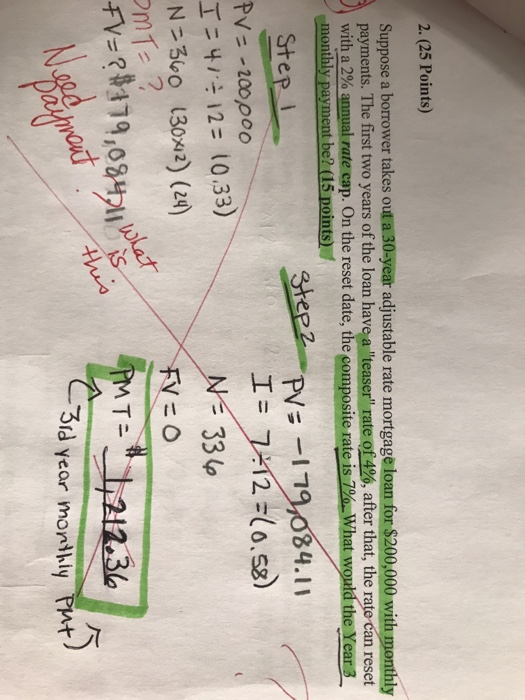 2. (25 Points)
Suppose a borrower takes out a 30-year adjustable rate mortgage loan for $200,000 with monthly
payments. The first two years of the loan have a "teaser" rate of 4%, after that, the rate can reset
with a 2% annual rate cap. On the reset date, the composite rate is 7%. What would the Year 3
monthly payment be? (15 points)
Step 1
PV = -200,000
I = 4% ÷ 12 = (0.33)
N = 360 (30x12) (24)
PMT = ?
FV = ? $179,084.11
Need payment
what is this
Step 2
PV = -179,084.11
I = 7 ÷ 12 = (0.58)
N = 336
FV = 0
PMT = $ 1,212.36
(3rd year monthly pmt)